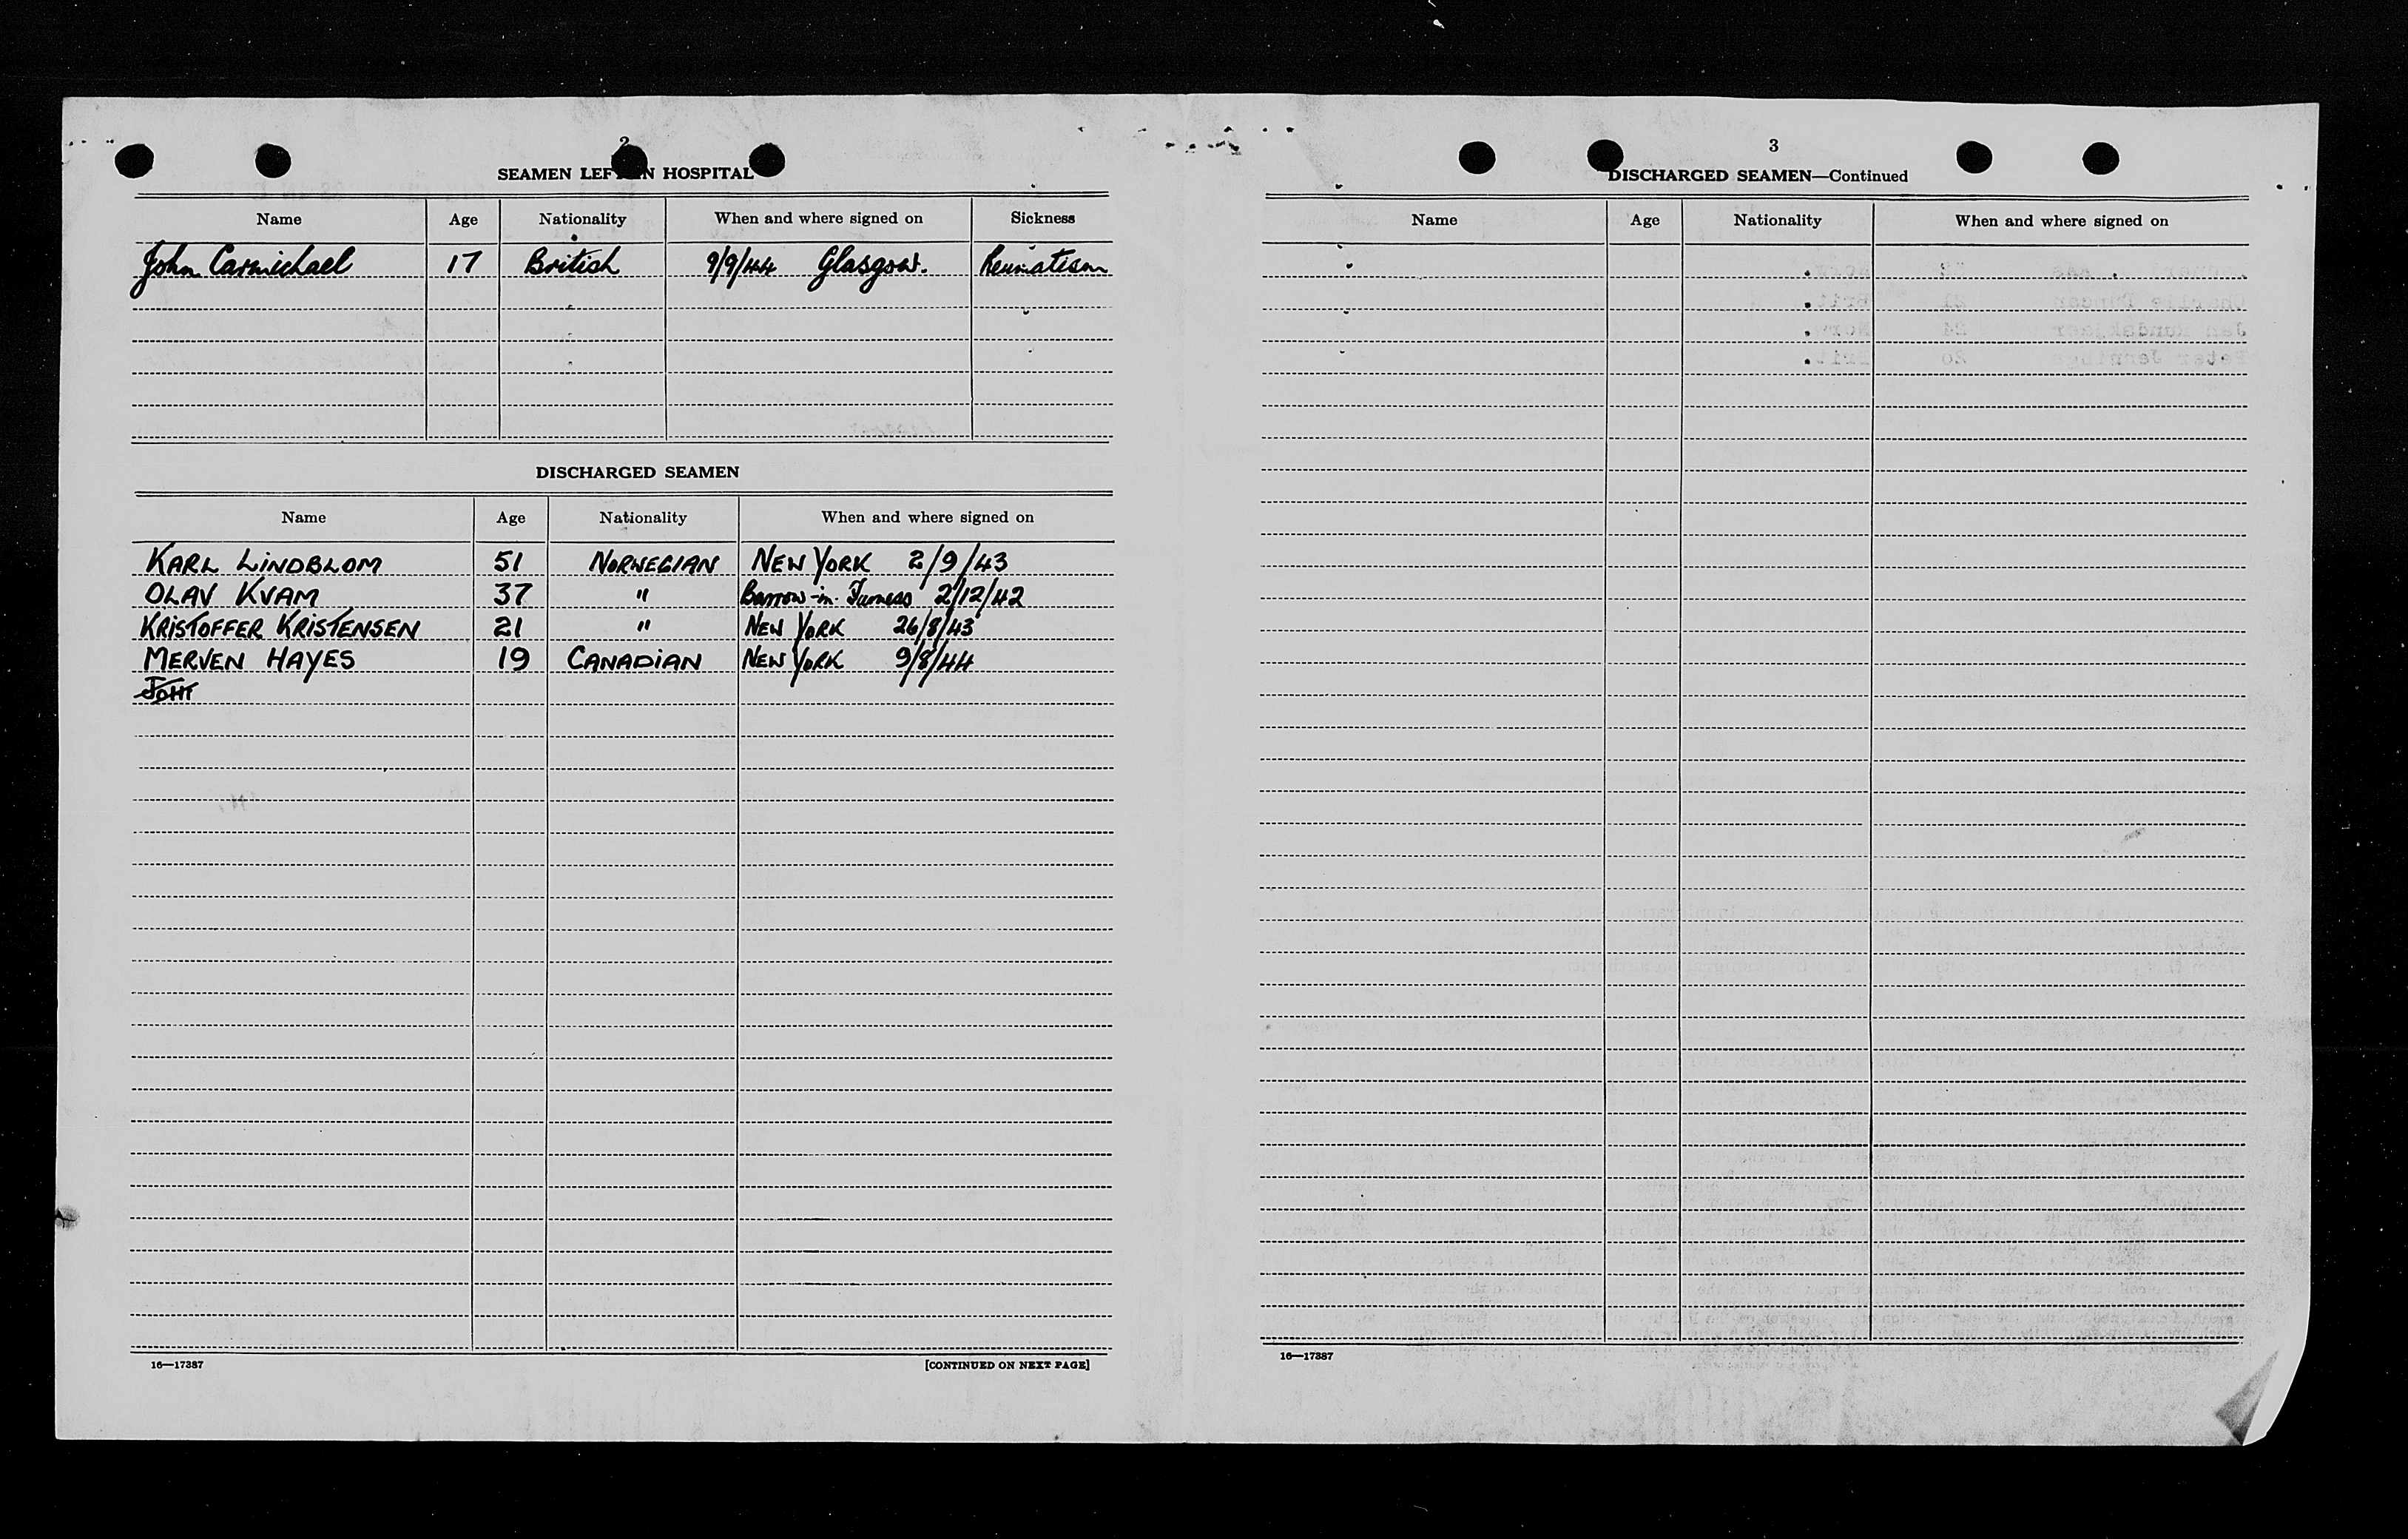 2
SEAMEN LEFT IN HOSPITAL
Name Age Nationality When and where signed on Sickness
John Carmichael 17 British 9/9/44 Glasgow. Reumatism
DISCHARGED SEAMEN
Name Age Nationality When and where signed on
KARL LINDBLOM 51 NORWEGIAN NEW YORK 2/9/43
OLAV KVAM 37 " Barrow-in-Furness 2/12/42
KRISTOFFER KRISTENSEN 21 " NEW YORK 26/8/43
MERVEN HAYES 19 CANADIAN NEW YORK 9/8/44
16—17387 [CONTINUED ON NEXT PAGE]
3
DISCHARGED SEAMEN—Continued
Name Age Nationality When and where signed on
16—17387